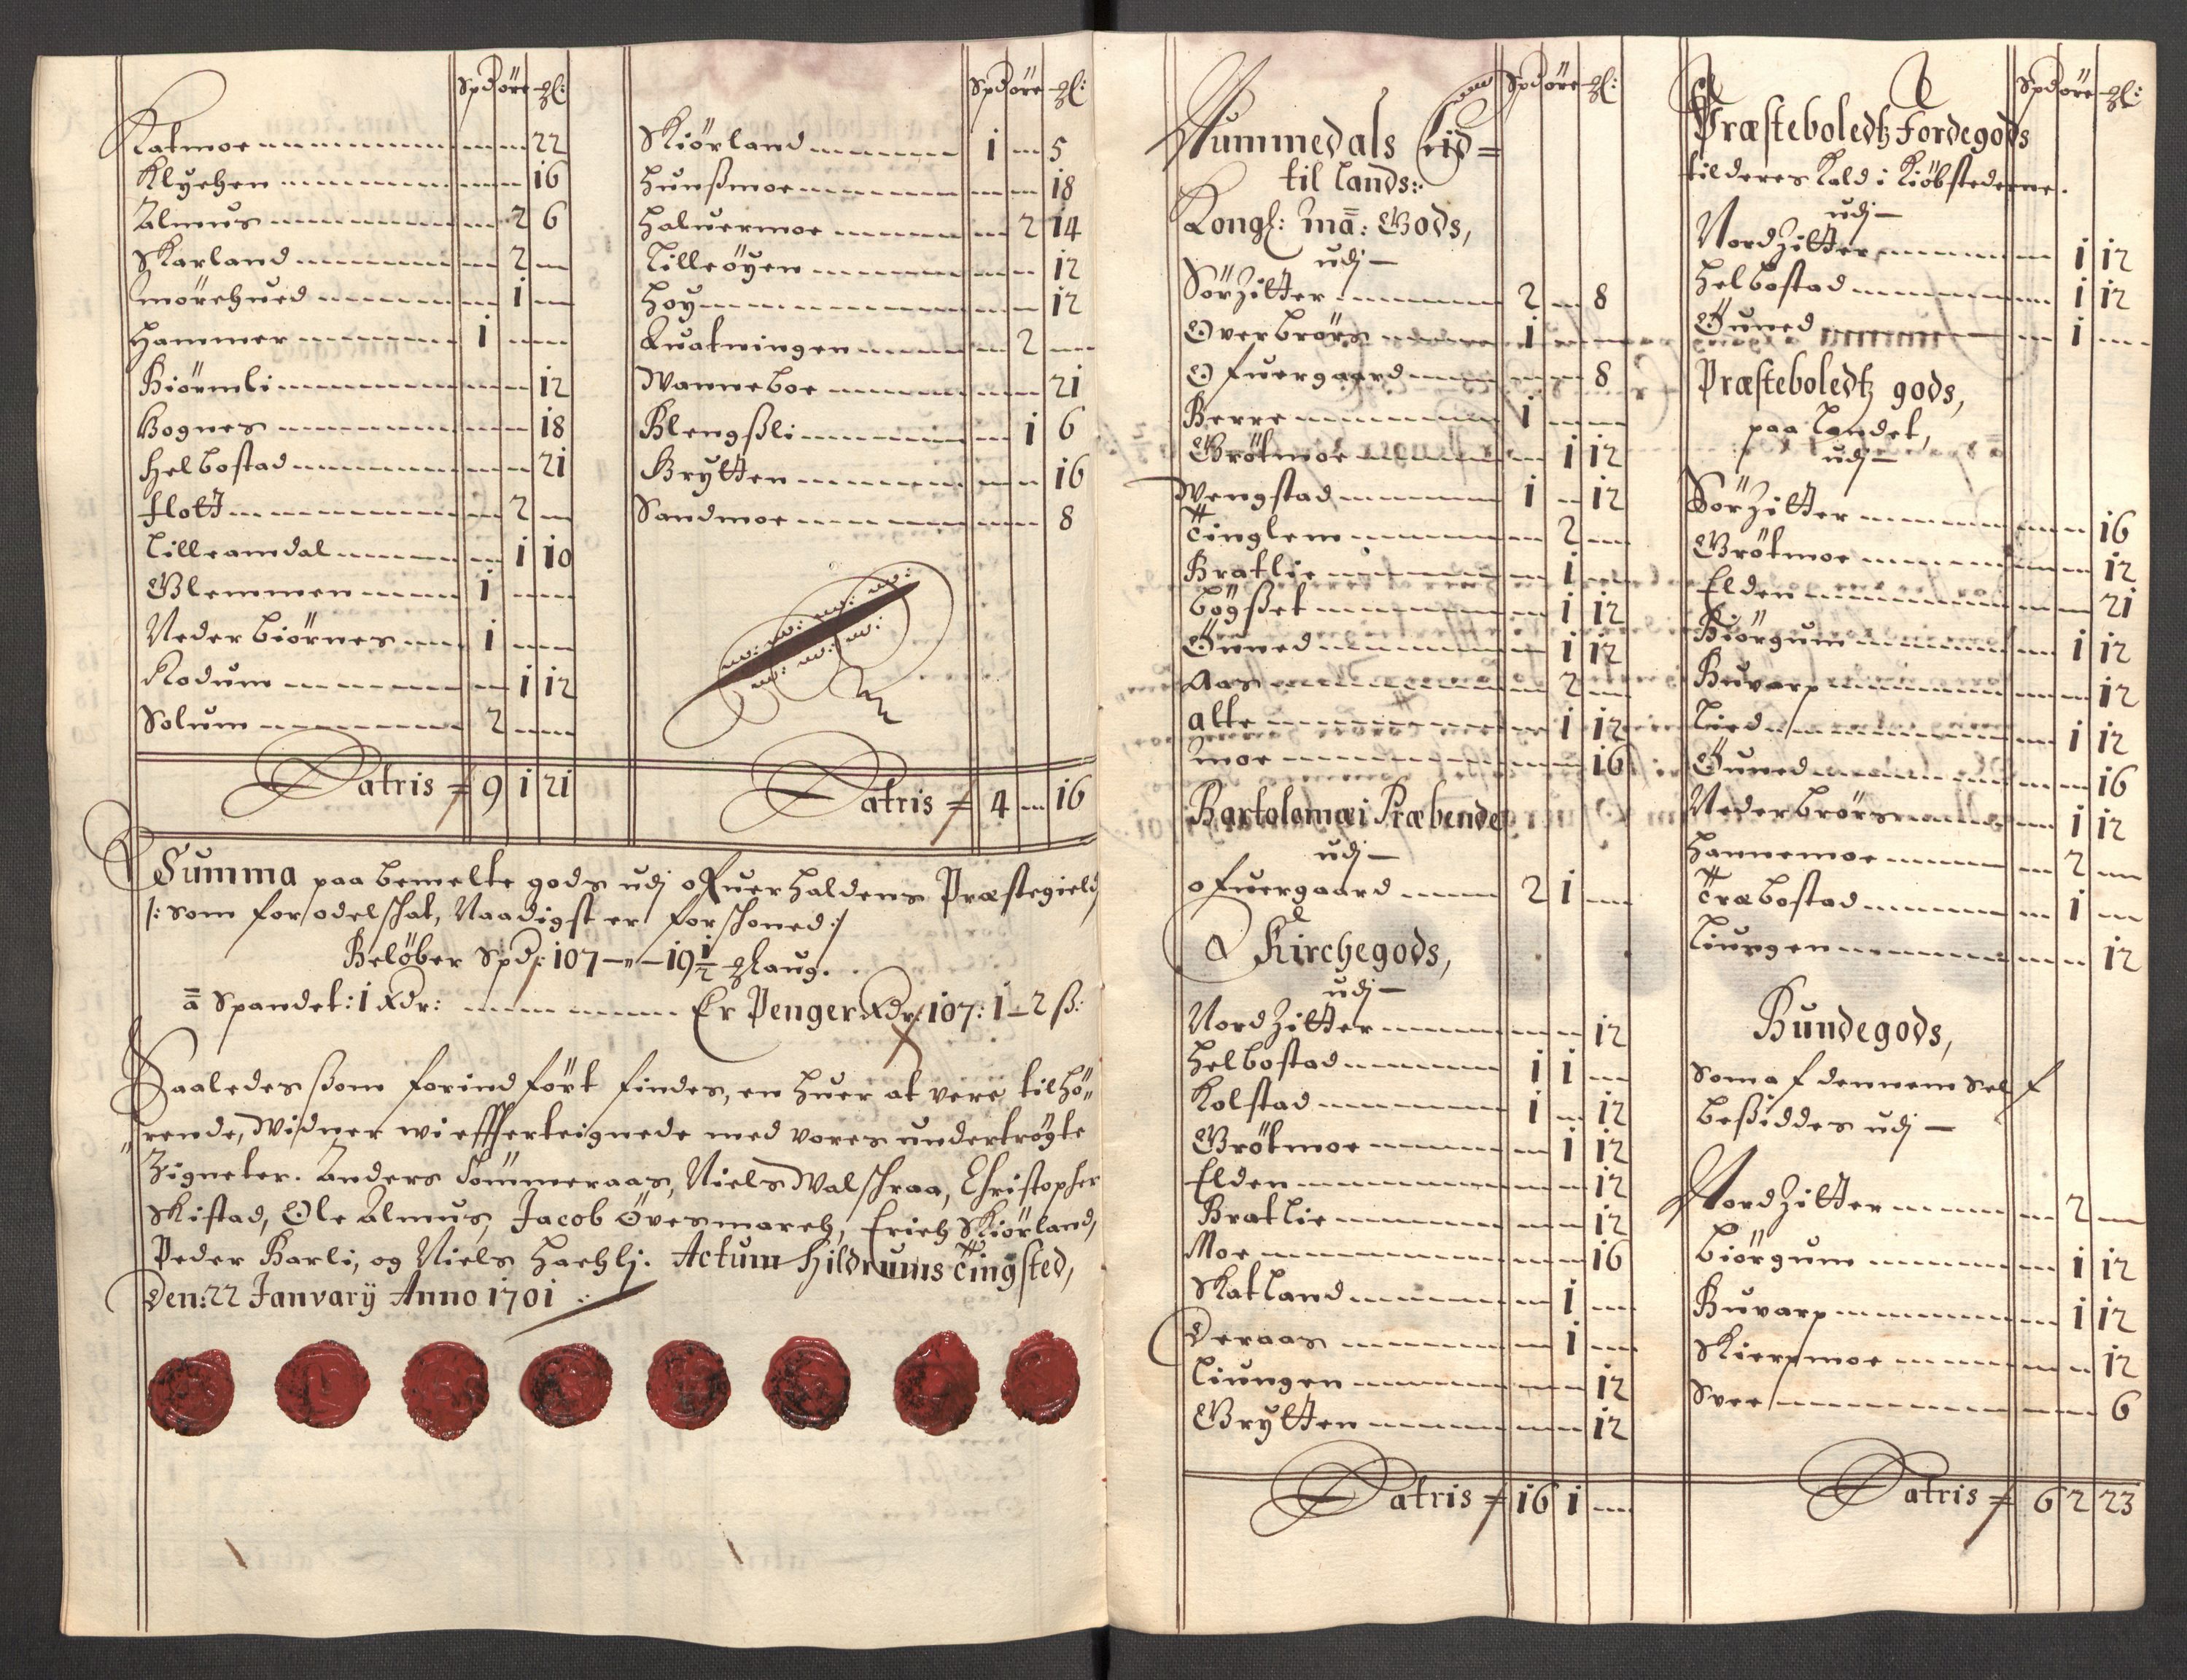 Spd öre gl:
Katmoe 22
Klychen 16
Almus 2 6
Skarland 2
Mörchved 1
Hammer 1
Biörmli 12
Bognes 18
Helbostad 21
Flott 2
Lilleamdal 1 10
Glemmen 1
Neder Biörnes 1
Rodum 1 12
Solum 2
Latris 9 1 21
Spd öre gl:
Skiörland 1 5
Hunßmoe 18
Haluermoe 2 14
Lilleöyen 12
Hoy 12
Quatningen 2
Wanneboe 21
Blengßli 1 6
Grytten 16
Sandmoe 8
Latris 4 16
Summa paa bemelte gods udj ofuerhaldens Præstegield
/: som for odelschat, Naadigst er forschoned:/
Beløber Spd: 107 – " – 19 1/2 glaug.
a Spandet: 1 Rdr: Er Penger Rdr: 107: 1 – 2 ß:
Saaledes ßom forind fört findes, en huer at vere tilhö„
„rende, Widner wi effterteignede med vores undertrögte
Zigneter. Anders Sömmeraas, Niels Walschraa, Christopher
Skistad, Ole Almus, Jacob Övesmarch, Erich Skiörland,
Peder Barli, og Niels Hachlj. Actum Hildrums Tingsted,
Den: 22 Janvarij Anno 1701
Spd öre gl:
Nummedals Eid=
til Lands:
Kongl: Ma: Gods,
udj –
Sör Zitter 2 8
Overbrörs 1
Ofuergaard 8
Berre 1
Grötmoe 1 12
Wengstad 1 12
Tinglem 2
Bratlie 1
Bögßet 1 12
Önned 1 12
Aas 2
Alte 1 12
Moe 16
Bartolomæi Præbende
udj –
ofuergaard 2 1
Kirchegods,
udj –
Nord Zitter 12
Helbostad 1 1
Kolstad 1 12
Grötmoe 1 12
Elden 12
Bratlie 12
Moe 16
Skatland 1
Deraas 1
Liungen 12
Grytten 12
Latris 16 1
Spd öre gl:
Præsteboledtz Fordegods
til deres Kald i Kiöbstederne.
udj –
Nord Zitter 1 12
Helbostad 1 12
Öuned 1
Præsteboledtz gods,
paa Landet,
udj –
Sör Zitter 16
Grötmoe 12
Elden 21
Biörgum 1 12
Buvarp 12
Lied 1 12
Öuned 16
Nederbrörs 1 12
Hannemoe 2
Træbostad 1
Liungen 12
Bundegods,
Som af dennem self
beßiddes udj –
Nord Zitter 2
Biörgum 1 12
Buvarp 1 12
Skiermoe 12
Svee 6
Latris 6 2 23